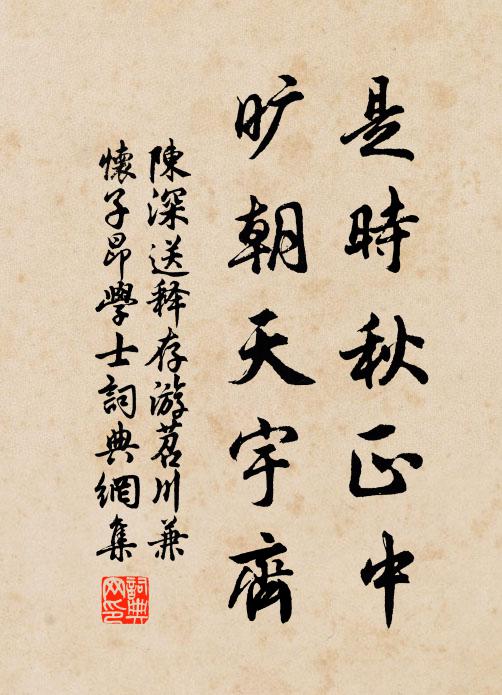 是時秋正中
旷朝天宇齊
陳深送释存游苕川兼
懷子昂學士詞典網集
詞典
网印